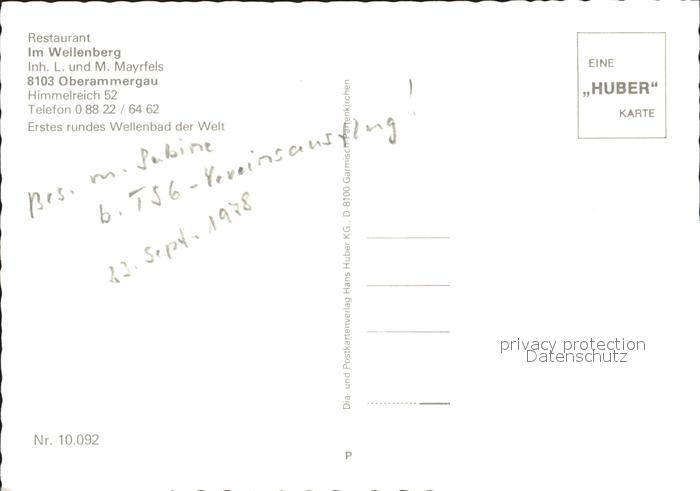 Restaurant
Im Wellenberg
Inh. L. und M. Mayrfels
8103 Oberammergau
Himmelreich 52
Telefon 0 88 22 / 64 62
Erstes rundes Wellenbad der Welt
Bes. m. Sabine
b. TSG-Vereinsausflug!
23. Sept. 1978
Nr. 10.092
Dia- und Postkartenverlag Hans Huber KG., D-8100 Garmisch-Partenkirchen
P
EINE
„HUBER“
KARTE
privacy protection
Datenschutz